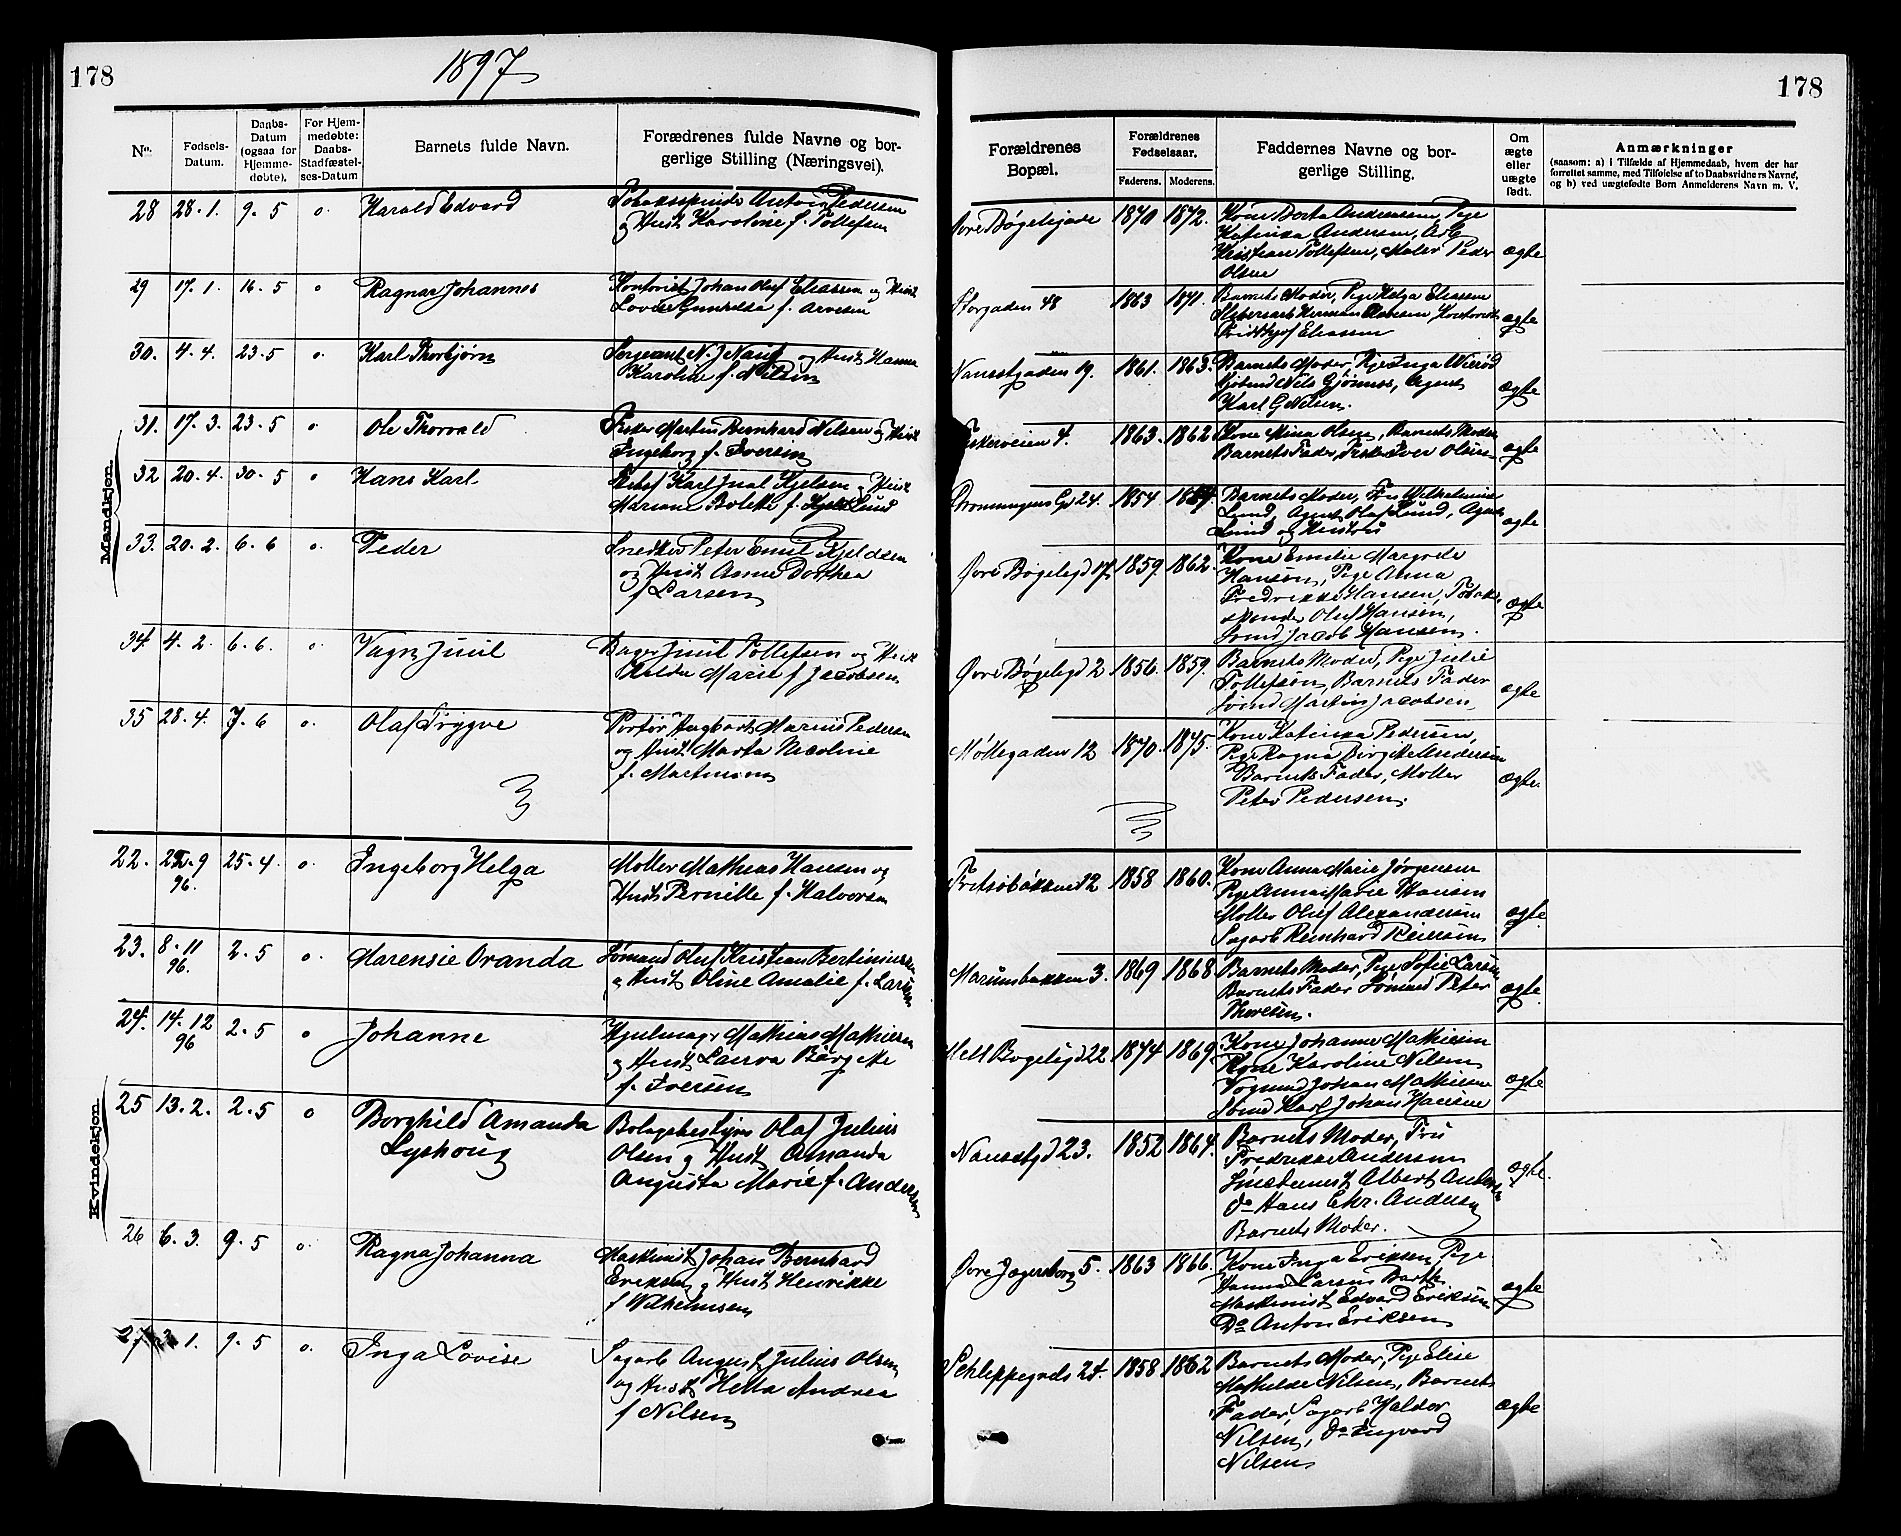 178
1897
178
No.
Fødsels-
Datum.
Daabs-
Datum
(ogsaa for
Hjemme-
døbte).
For Hjem-
medøbte:
Daabs-
Stadfæstel-
ses-Datum
Barnets fulde Navn.
Forædrenes fulde Navne og bor-
gerlige Stilling (Næringsvei).
Forældrenes
Bopæl.
Forældrenes
Fødselsaar.
Faderens. Moderens.
Faddernes Navne og bor-
gerlige Stilling.
Om
ægte
eller
uægte
født.
Anmærkninger
(saasom: a) i Tilfælde af Hjemmedaab, hvem der har
forrettet samme, med Tilføielse af to Daabsvidners Navne,
og b) ved uægtefødte Børn Anmelderens Navn m. V.
Mandkjøn.
28 28. 1. 9. 5 o. Harald Edvard
Pedersen
og Hust Karoline f. Tollefsen
Øvre Bøgeligade 1870 1872.
Kone Berta Andersen, Pige
Katinka Andersen, Arb
Kristian Tollefsen, Maler Peder
Olsen
ægte
29 17. 1. 16. 5 o Ragnar Johannes
Kontorist Johan Oluf Eliassen og Hust
Lovise Gunhilda f. Arnesen
Storgaden 48 1863 1871.
Barnets Moder, Pige Helga Eliassen
Herman Hansen
Fridthjof Eliassen
ægte
30. 4. 4. 23. 5 o. Karl Thorbjørn
Sergeant N. J. og Hust Hanna
Karoline f. Nilsen
Nansetgaden 19. 1861. 1863.
Barnets Moder, Pige Inga
Nils Gjønnes, Agent
Karl G Nilsen.
ægte
31. 17. 3. 23. 5 o. Ole Thorvald
Fisker Martin Bernhard Nilsen og Hust
Ingeborg f. Iversen
Fiskerveien 4. 1863. 1862
Kone Mina Olsen, Barnets Moder
Barnets Fader, Fisker Iver Olsen
ægte
32 20. 4. 30. 5 o Hans Karl
Karl Juel Kjelsen og Hust
Mariane Bolette f. Lund
Dronningens Gd 24. 1854.
Barnets Moder, Fru Wilhelmine
Lund, Agent Olaf Lund, Agent
Lund og Hustru
ægte
33. 20. 2. 6. 6 o. Peder
Snedker Peter Emil Kjeldsen
og Hust Anne Dorthea
f Larsen
Øvre Bøgeligd 17 1859. 1862.
Kone Emilie Margrete
Hansen, Pige Anna
Fredrikke Hansen,
Oluf Hansen,
Sømd Jacob Hansen.
ægte
34. 4. 2. 6. 6. o Vagn Juul
Bager Juul Tollefsen og Hust
Hulda Marie f Jacobsen
Øvre Bøgeligd 2 1856. 1859.
Barnets Moder, Pige Julie
Tollefsen, Barnets Fader
Sømd Martin Jacobsen
ægte
35 28. 4. 7. 6 o. Olaf Trygve
Portør Ingbart Marius Pedersen
og Hust. Marta Nicoline
f. Martinsen
Møllegaden 12 1870. 1875.
Kone Katinka Pedersen,
Pige Ragna Birgitte Andersen
Barnets Fader, Møller
Peter Pedersen.
ægte.
Kvindekjøn.
22. 9 96. 25. 4. o. Ingeborg Helga
Møller Mathias Hansen og
Hust Pernille f. Halvorsen
Fritsøbakken 12 1858 1860.
Kone Anne Marie Jørgensen
Pige Anna Marie Hansen
Møller Oluf Alexandersen
Sagarb Reinhard Reiersen
ægte
23. 8. 11 96. 2. 5 o. Marensie Oranda
Sømand Oluf Kristian Bertiniusen
og Hust Oline Amalie f. Larsen
3. 1869 1868.
Barnets Moder, Pige Sofie Larsen
Barnets Fader Sømand Peter
Thoresen.
ægte
24. 14. 12 96 2. 5 o Johanne
Hjulmager Mathias Mathisen
og Hust Laura Birgitte
f. Iversen
Bøgeligd 22 1874 1869.
Kone Johanne Mathisen
Kone Karoline Nilsen
Vognmd Johan Mathisen
Sømd Karl Johan Hansen
ægte
25 13. 2. 2. 5 o Borghild Amanda
Lyshoug
Bolagsbestyrer Olaf Julius
Olsen og Hust Amanda
Augusta Marie f. Andersen
Nansetgd 23. 1852 1864.
Barnets Moder, Fru
Fredrikke Andersen
Albert Andersen
Do Hans Chr. Andersen
Barnets Moder.
ægte.
26 6. 3. 9. 5 o. Ragna Johanna
Maskinist Johan Bernhard
Eriksen og Hust Henrikke
f Wilhelmsen
Øvre Jegersborg 5. 1863 1866.
Kone Inga Eriksen, Pige
Hanna Larsen
Maskinist Edvard Eriksen
Do Anton Eriksen
ægte
27 1. 9. 5 o. Inga Lovise
Sagarb August Julius Olsen
og Hust Helta Andrea
f Nilsen
Schleppegrels 24. 1858 1862
Barnets Moder, Pige Elise
Mathilde Nilsen, Barnets
Fader, Sagarb Halder
Nilsen, Do Ingvard
Nilsen
ægte